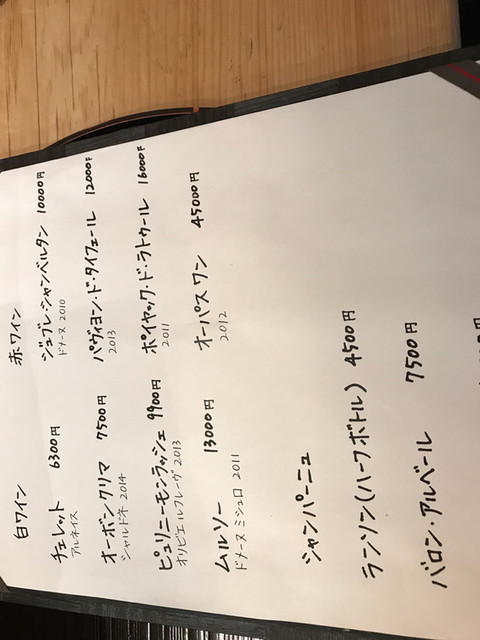 白ワイン
チェレット 6300円
アルネイス
オーボンクリマ 7500円
シャルドネ 2014
ピュリニーモンラッシェ 9900円
オリビエルフレーヴ 2013
ムルソー 13000円
ドメーヌミシェロ 2011
赤ワイン
ジュブレ・シャンベルタン 10000円
ドメーヌ 2010
パヴィヨン・ド・タイフェール 12000円
2013
ポイヤック・ド・ラトゥール 16000円
2011
オーパスワン 45000円
2012
シャンパーニュ
ランソン(ハーフボトル) 4500円
バロン・アルベール 7500円